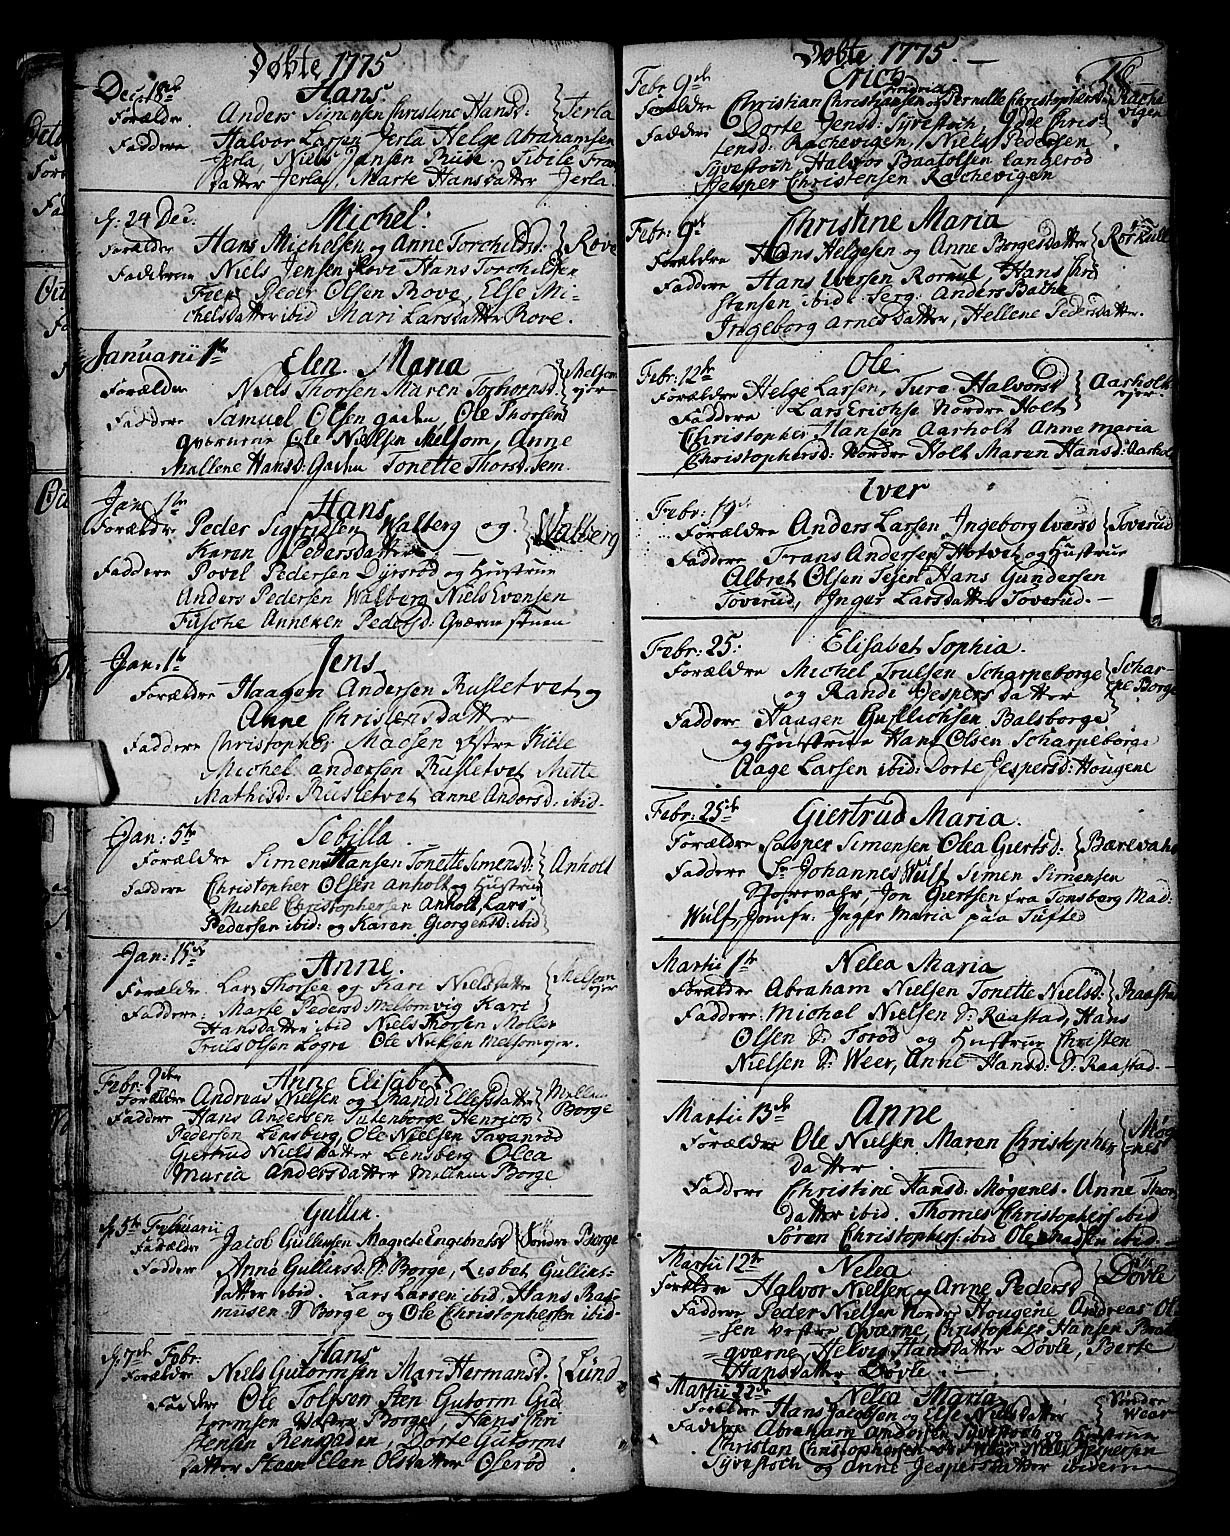 Døbte 1775
Dec: 18de Hans.
Forældre Anders Simensen Christine Hansd: Jerla
Faddere Halvor Larsen Jerla Helge Abrahamsen
Jerla, Niels Jansen Buse. Sibile Frans
datter Jerla, Marte Hansdatter Jerla
24 Dec. Michel.
Forældre Hans Michelsen og Anne Torchelsd: Rove
Fadderne Niels Jensen Rove Hans Torchelsen
Peder Olsen Rove, Else Mi-
chelsdatter ibid Mari Larsdatter Rove.
Januarii 1te Elen Maria
Forældre Niels Thorsen Maren Torbornsd: Melsom
ejer
Faddere Samuel Olsen gaden Ole Thorsen
qværnene Ole Nielsen Melsom, Anne
Mallene Hansd: Gaden Tonette Thorsd: Sem.
Jan: 1te Hans
Forældre Peder Sigvridsen Walberg og Walberg
Karen Pedersdatter
Faddere Povel Pedersen Dyrsrød og Hustrue
Anders Pedersen Walberg Niels Evensen
Fusche Anneken Pedersd: Qværne stuen
Jan: 1te Jens
Forældre Haagen Andersen Rusletvet og
Anne Christensdatter
Faddere Christopher Madsen Østre Kiile
Michel andersen Rusletvet Mette
Mathisd: Rusletvet anne Andersd: ibid.
Jan: 5te Sebilla.
Forældre Simen Hansen Tonette Simensd: Anholt
Faddere Christopher Olsen anholt og Hustrue
Michel Christophersen Anholt Lars
Pedersen ibid: og Karen Giorgensd: ibid
Jan: 15de Anne.
Forældre Lars Thorsen og Kari Nielsdatter Melsom
ejer
Faddere: Marte Pedersd Melsomvig Kari
Hansdatter ibid Niels Thorsen Moller
Truls Olsen Logre Ole Nielsen Melsomejer.
Febr: 2den Anne Elisabet
Forældre Andreas Nielsen og Randi Ellefsdatter Mellem
Borge
Faddere Hans Andersen Tutenborge Henrich
Pedersen Lensberg Ole Nielsen Tavanrød
Giertrud Nielsdatter Lensberg Olea
Maria Andersdatter Mellem Borge
5te Februarii Gullik.
Forældre Jacob Gullicksen Magrete Engebretsd Søndre Borge
Faddere Anne Gullicksd: S: Borge, Lisbet Gullics-
datter ibid. Lars Larsen ibid, Hans Ras-
musen S: Borge og Ole Christophersen ibid-
7de Febr: Hans
Forældre Niels Gutormsen Mari Hermansd: Lund
Faddere Ole Tolfsen Sten Gutorm Gut-
tormsen Westre Borge, Hans Chri
stensen Rensgaden, Dorte Gutorms
datter Steen Elen Olsdatter Oserød
Døbte 1775. 16
Febr. 9de Erich Andreas
Forældre Christian Christiansen og Pernelle Christophersd: Rache
vigen
Faddere Dorte Jensd: Syvestoch Gude Chris-
tensd: Rachevigen, Niels Pedersen
Syvestoch Halvor Baarolsen tangerød
Jesper Christensen Rachevigen
Febr: 9de Christine Maria
Forældre Hans Helgesen og Anne Borgesdatter Rørkull
Faddere Hans Iversen Rorkul, Hans Chri
stansen ibid: Serg: Anders Bache
Ingeborg Arnesdatter, Hellene Pedersdatter.
Febr: 12te Ole
Forældre Helge Larsen, Turo Halvorsd Aarholt
ejer.
Faddere Lars Erichse Nordre Holt
Christopher Hansen Aarholt Anne maria
Christophersd: Nordre Holt Maren Hansd: Aarholt
Iver
Febr: 19de
Forældre Anders Larsen, Ingeborg Iversd Toverud
Faddere Frans Andersen Hotvet og Hustrue
Albret Olsen Tejen Hans Gundersen
Toverud, Inger Larsdatter Toverud. -
Febr: 25: Elisabet Sophia.
Forældre Michel Trulsen Scharpeborge Schar-
pe Borge
og Randi Jespersdatter
Faddere Haagen Gullichsen Balsborge
og Hustrue Hans Olsen Scharpeborge
Aage Larsen ibid: Dorte Jespersd: Hougene
Febr: 25de Giertrud Maria.
Forældre Casper Simensen Olea Giertsd: Bærevahr
Faddere Sr Johannes Wulf Simen Simensen
Jon Giertsen fra Tonsberg Mad:
Wulf, Jomfr: Inger Maria paa Tufte
Martii 1te Nelea Maria
Forældre Abraham Nielsen Tonette Nielsd: Raastad
Faddere: Michel Nielsen S: Raastad, Hans
Olsen S: Torød og Hustrue Christen
Nielsen S: Weer, Anne Hansd: S: Raastad. -
Martii 13de Anne
Forældre Ole Nielsen Maren Christophers Møge
nes
datter
Faddere Christine Hansd: Møgenes. Anne Thors
datter ibid. Thomes Christophers ibid
Søren Christophers: ibid Ole Madsen ibid. -
Martii 12te Nelea
Forældre Halvor Nielsen og Anne Pedersd Døvle
Faddere Peder Nielsen Nordre Hougene Andreas Ol-
sen vestre qværne, Christopher Hansen Brat
qværne, Helvig Hansdatter Døvle, Berte
Hansdatter Døvle. -
Martii 22de Nelea Maria
Forældre Hans Jacobsen og Else Nielsdatter Søndre
Wear
Faddere Abraham Andersen Syvestoch og Hustrue
Christen Christophersen Wear Niels Jespersen
Syvestoch og Anne Jespersdatter ibidem